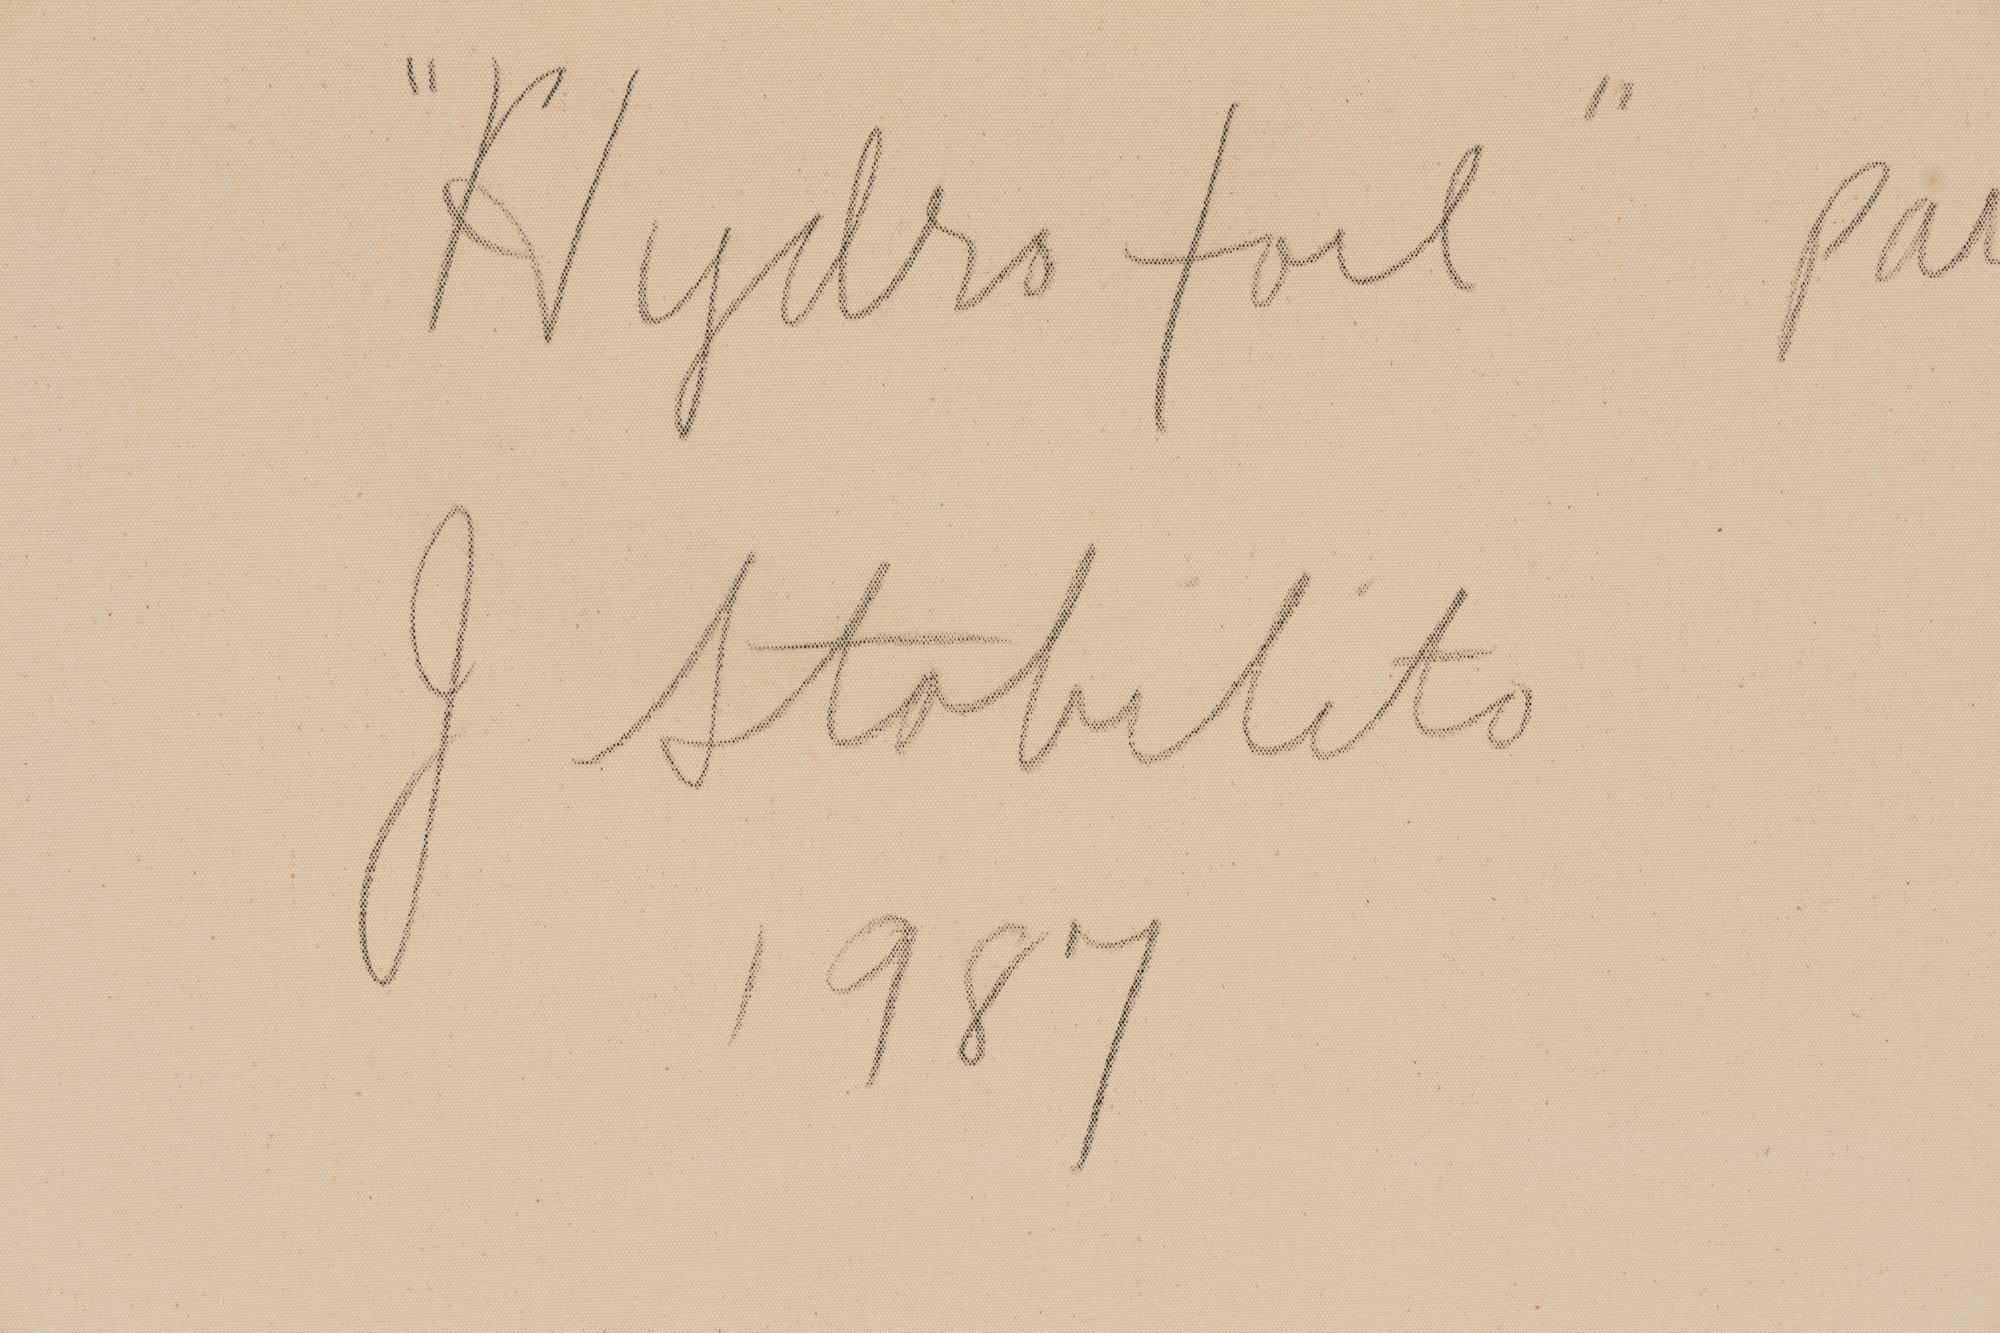 "Hydrofoil"
J Stabilito
1987